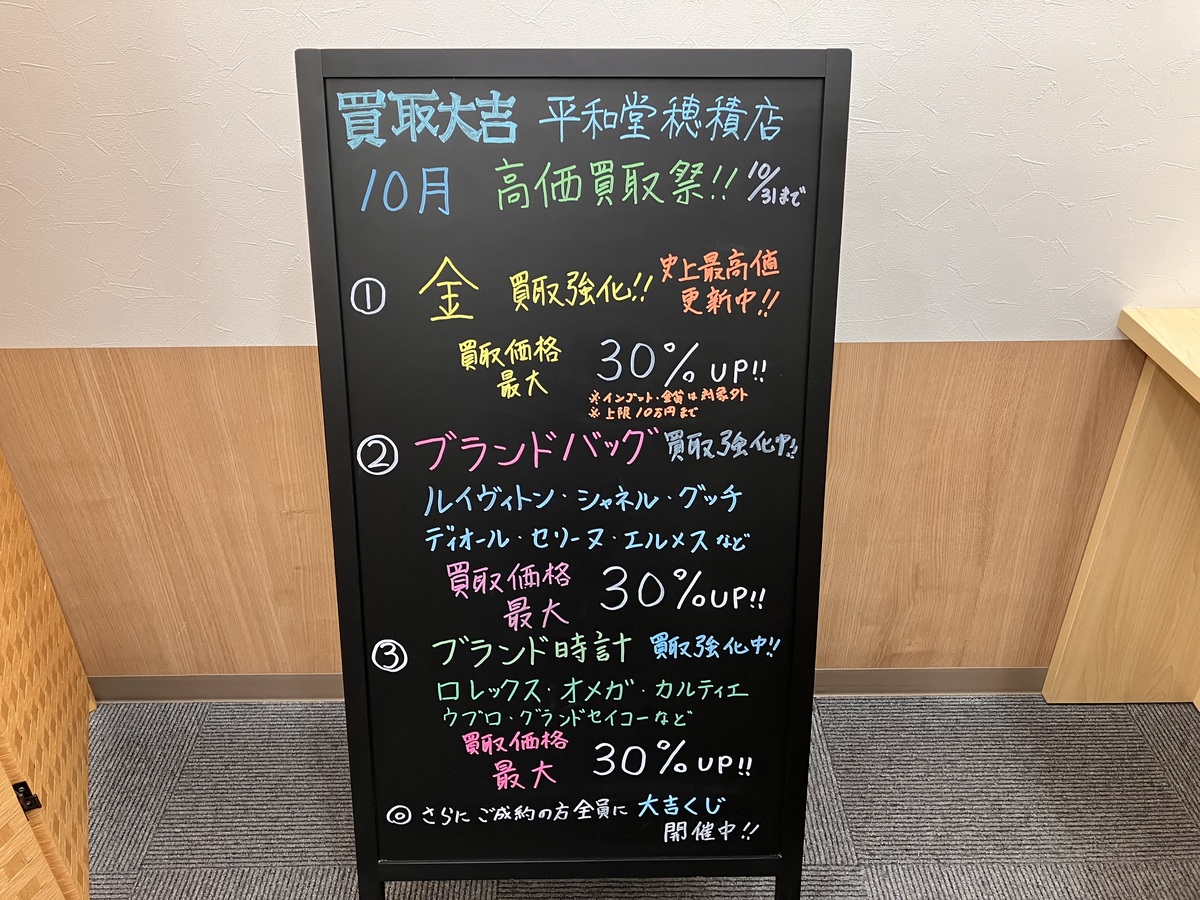 買取大吉 平和堂穂積店
10月 高価買取祭!! 10/31まで
① 金 買取強化!! 史上最高値
更新中!!
買取価格
最大 30%UP!!
※インゴット・金貨は対象外
※上限10万円まで
② ブランドバッグ 買取強化中!!
ルイヴィトン・シャネル・グッチ
ディオール・セリーヌ・エルメスなど
買取価格
最大 30%UP!!
③ ブランド時計 買取強化中!!
ロレックス・オメガ・カルティエ
ウブロ・グランドセイコーなど
買取価格
最大 30%UP!!
◎ さらにご成約の方全員に 大吉くじ
開催中!!